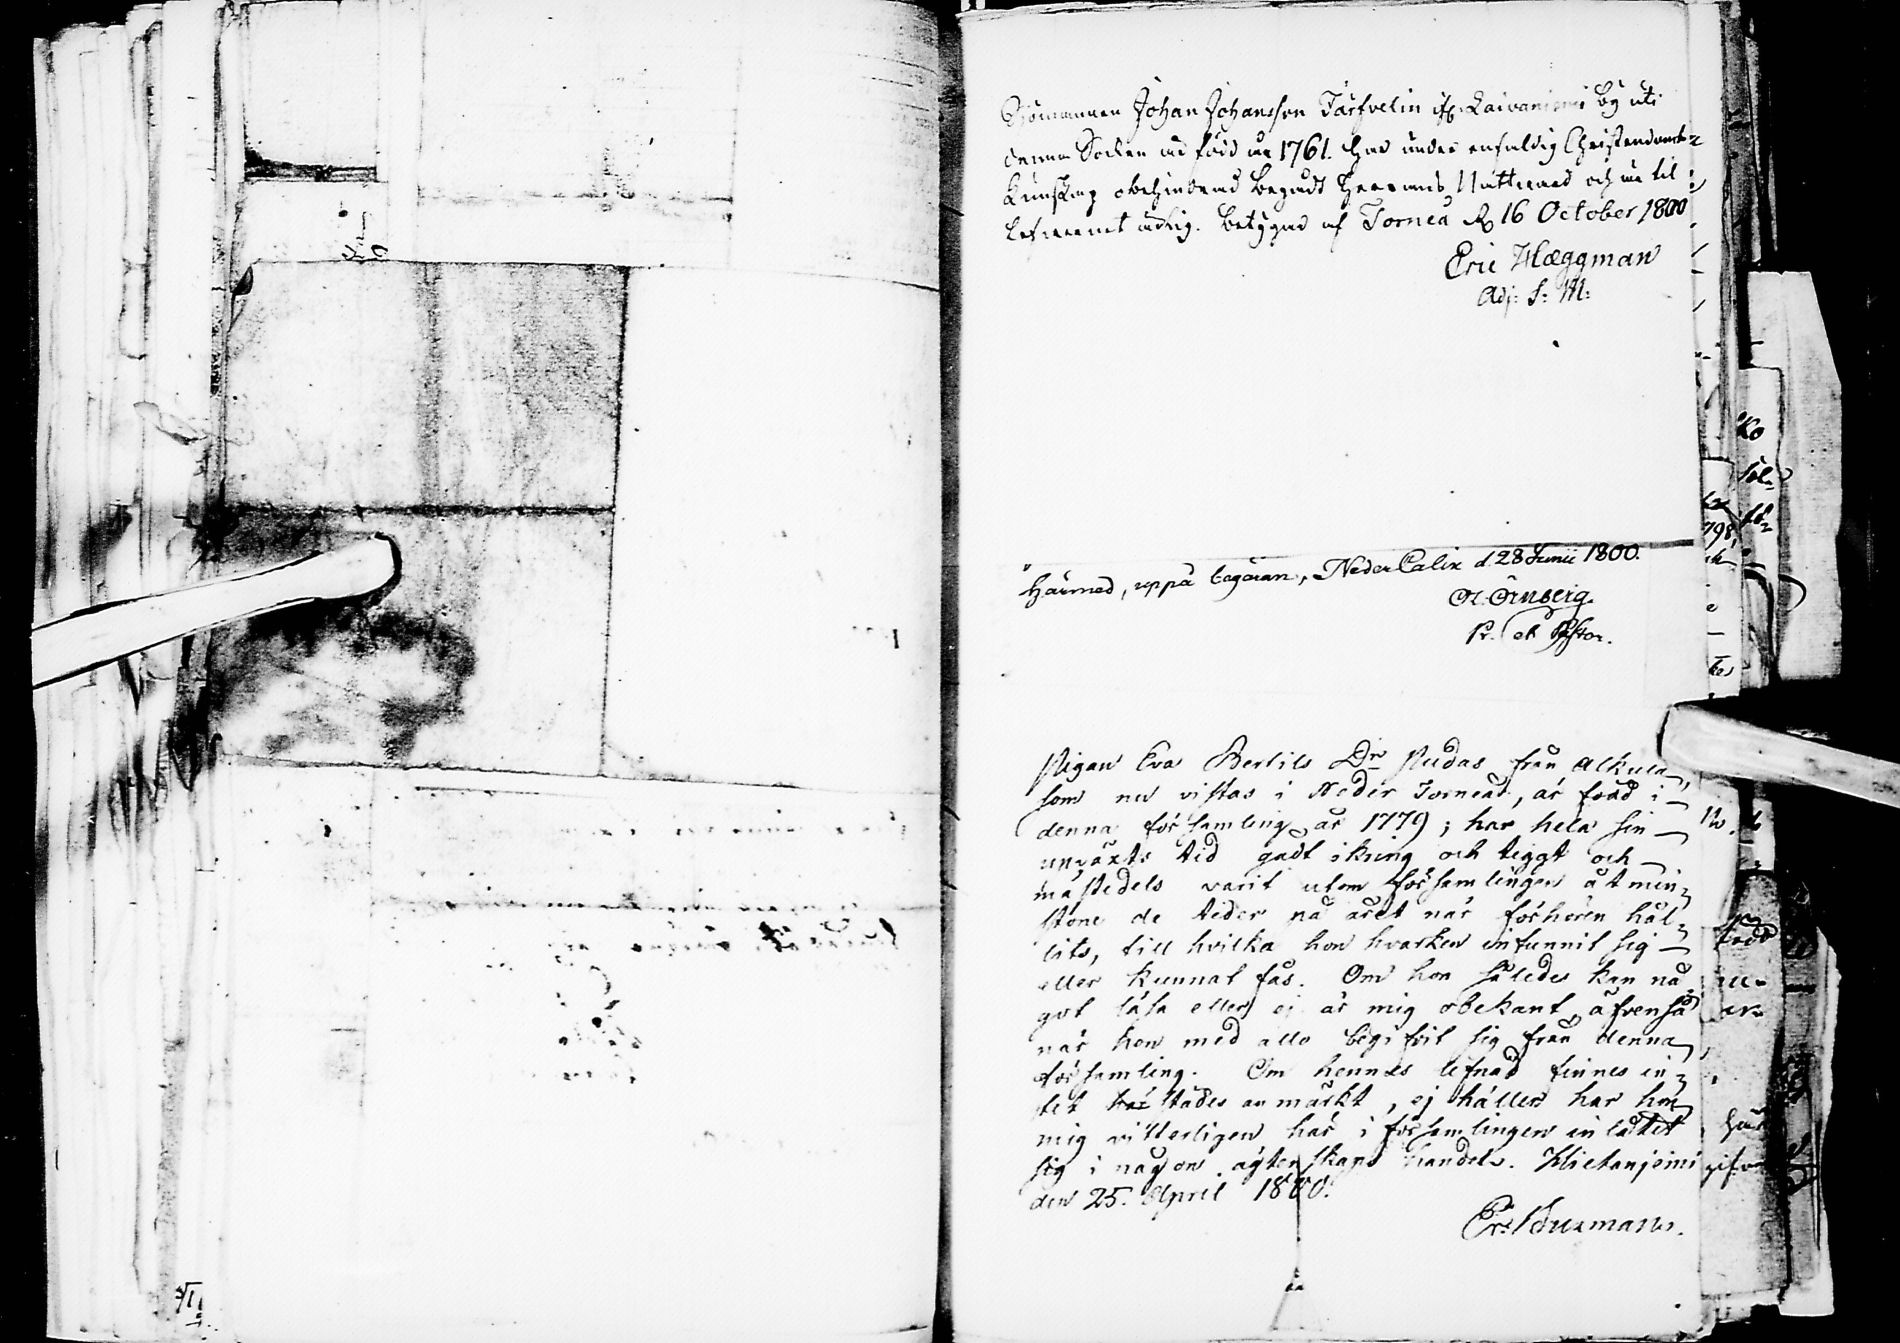 Sömannen Johan Johansson Tärfvelin ifr. Laivaniemi by uti
denna Socken är född år 1761. har under enfaldig Christendoms-
kunskap obehindrad begådt Herrans Nattvard och är til
lefvernet ärlig. betygas af Torneå d. 16 October 1800
Eric Hæggman
Adj: S: M:
Härmed, uppå begäran, NederCalix d 28 Junii 1800.
Ol. Örnberg
Pr. et Pastor.
Pigan Eva Bertils Dr Rudas från Alkula,
som nu vistas i Neder Torneå, är född i
denna församling år 1779; har hela sin
upväxts tid gådt ikring och tiggt och
mästedels varit utom församlingen åtmin-
stone de tider på året när förhören hål-
lits, till hvilka hon hvarken infunnit sig
eller kunnat fås. Om hon således kan nå-
got läsa eller ej är mig obekant, äfvenså
när hon med allo begifvit sig från denna
församling. Om hennes lefnad finnes in-
tet härstädes anmärkt, ej häller har hon
mig vitterligen här i församlingen inlåtit
sig i någon ägtenskaps handel. Hietaniemi
den 25. April 1800.